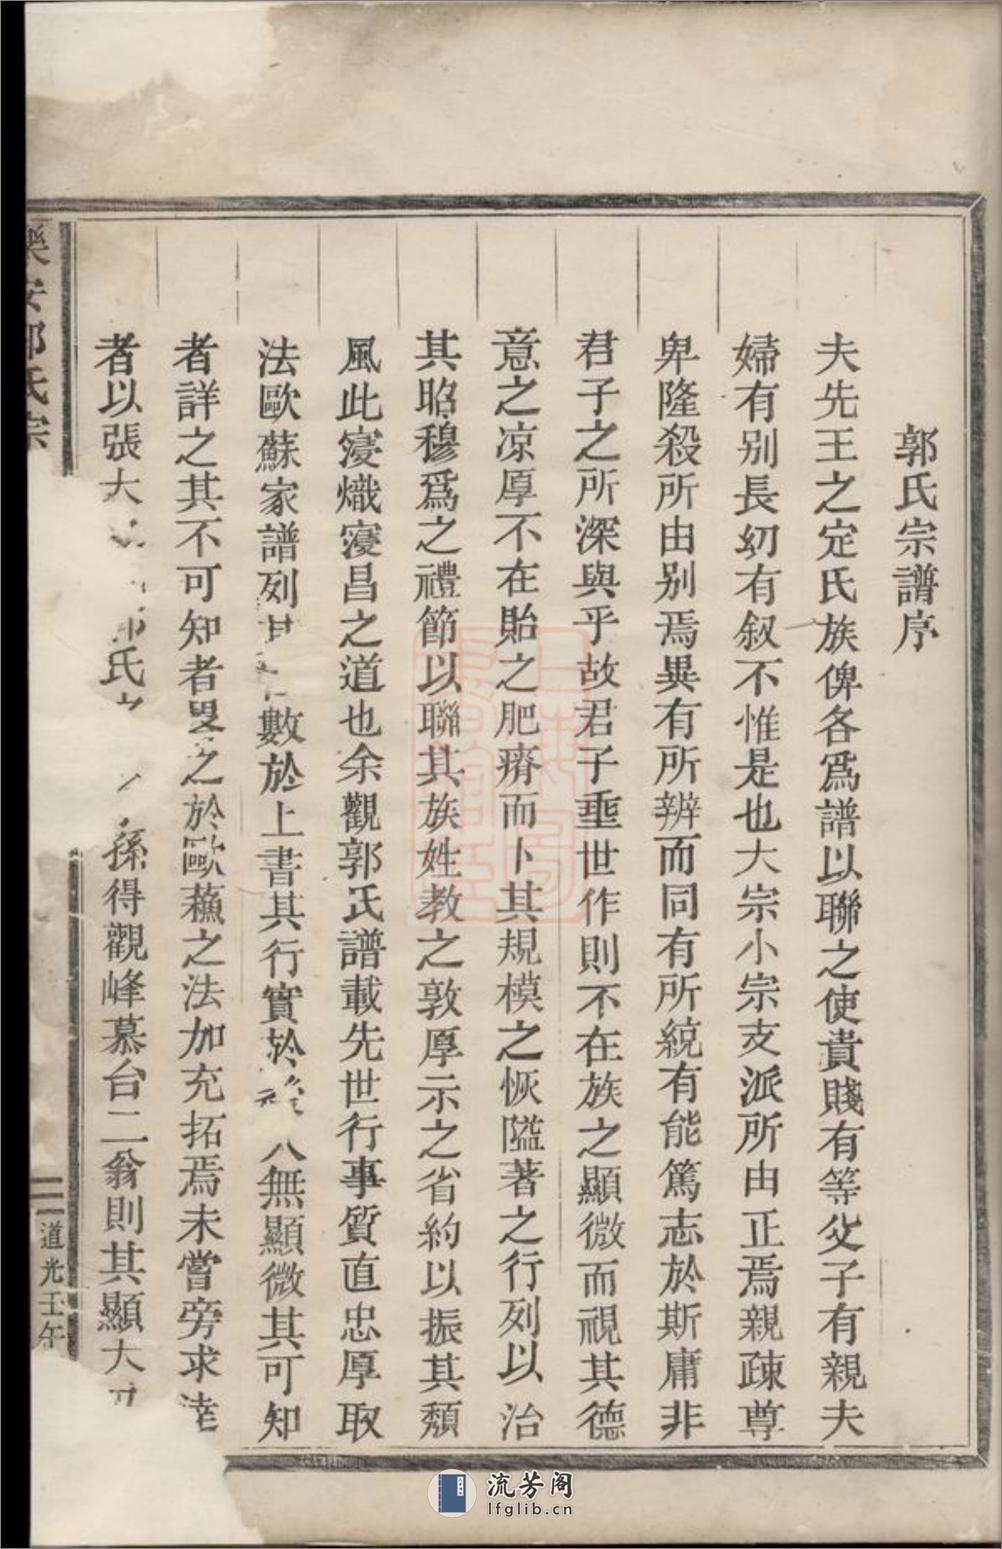 郭氏宗譜序
夫先王之定氏族俾各爲譜以聯之使貴賤有等父子有親夫
婦有别長幼有叙不惟是也大宗小宗支派所由正焉親疎尊
卑隆殺所由别焉異有所辨而同有所統有能篤志於斯庸非
君子之所深與乎故君子垂世作則不在族之顯微而視其德
意之凉厚不在貽之肥瘠而卜其規模之恢隘著之行列以治
其昭穆爲之禮節以聯其族姓教之敦厚示之省約以振其頹
風此寖熾寖昌之道也余觀郭氏譜載先世行事質直忠厚取
法歐蘇家譜列其數於上書其行實於無顯微其可知
者詳之其不可知者畧之於歐蘓之法加充拓焉未嘗旁求逹
者以張大氏孫得觀峰慕台二翁則其顯大
樂安郭氏宗
二
道光壬午
流芳阁
lfglib.cn